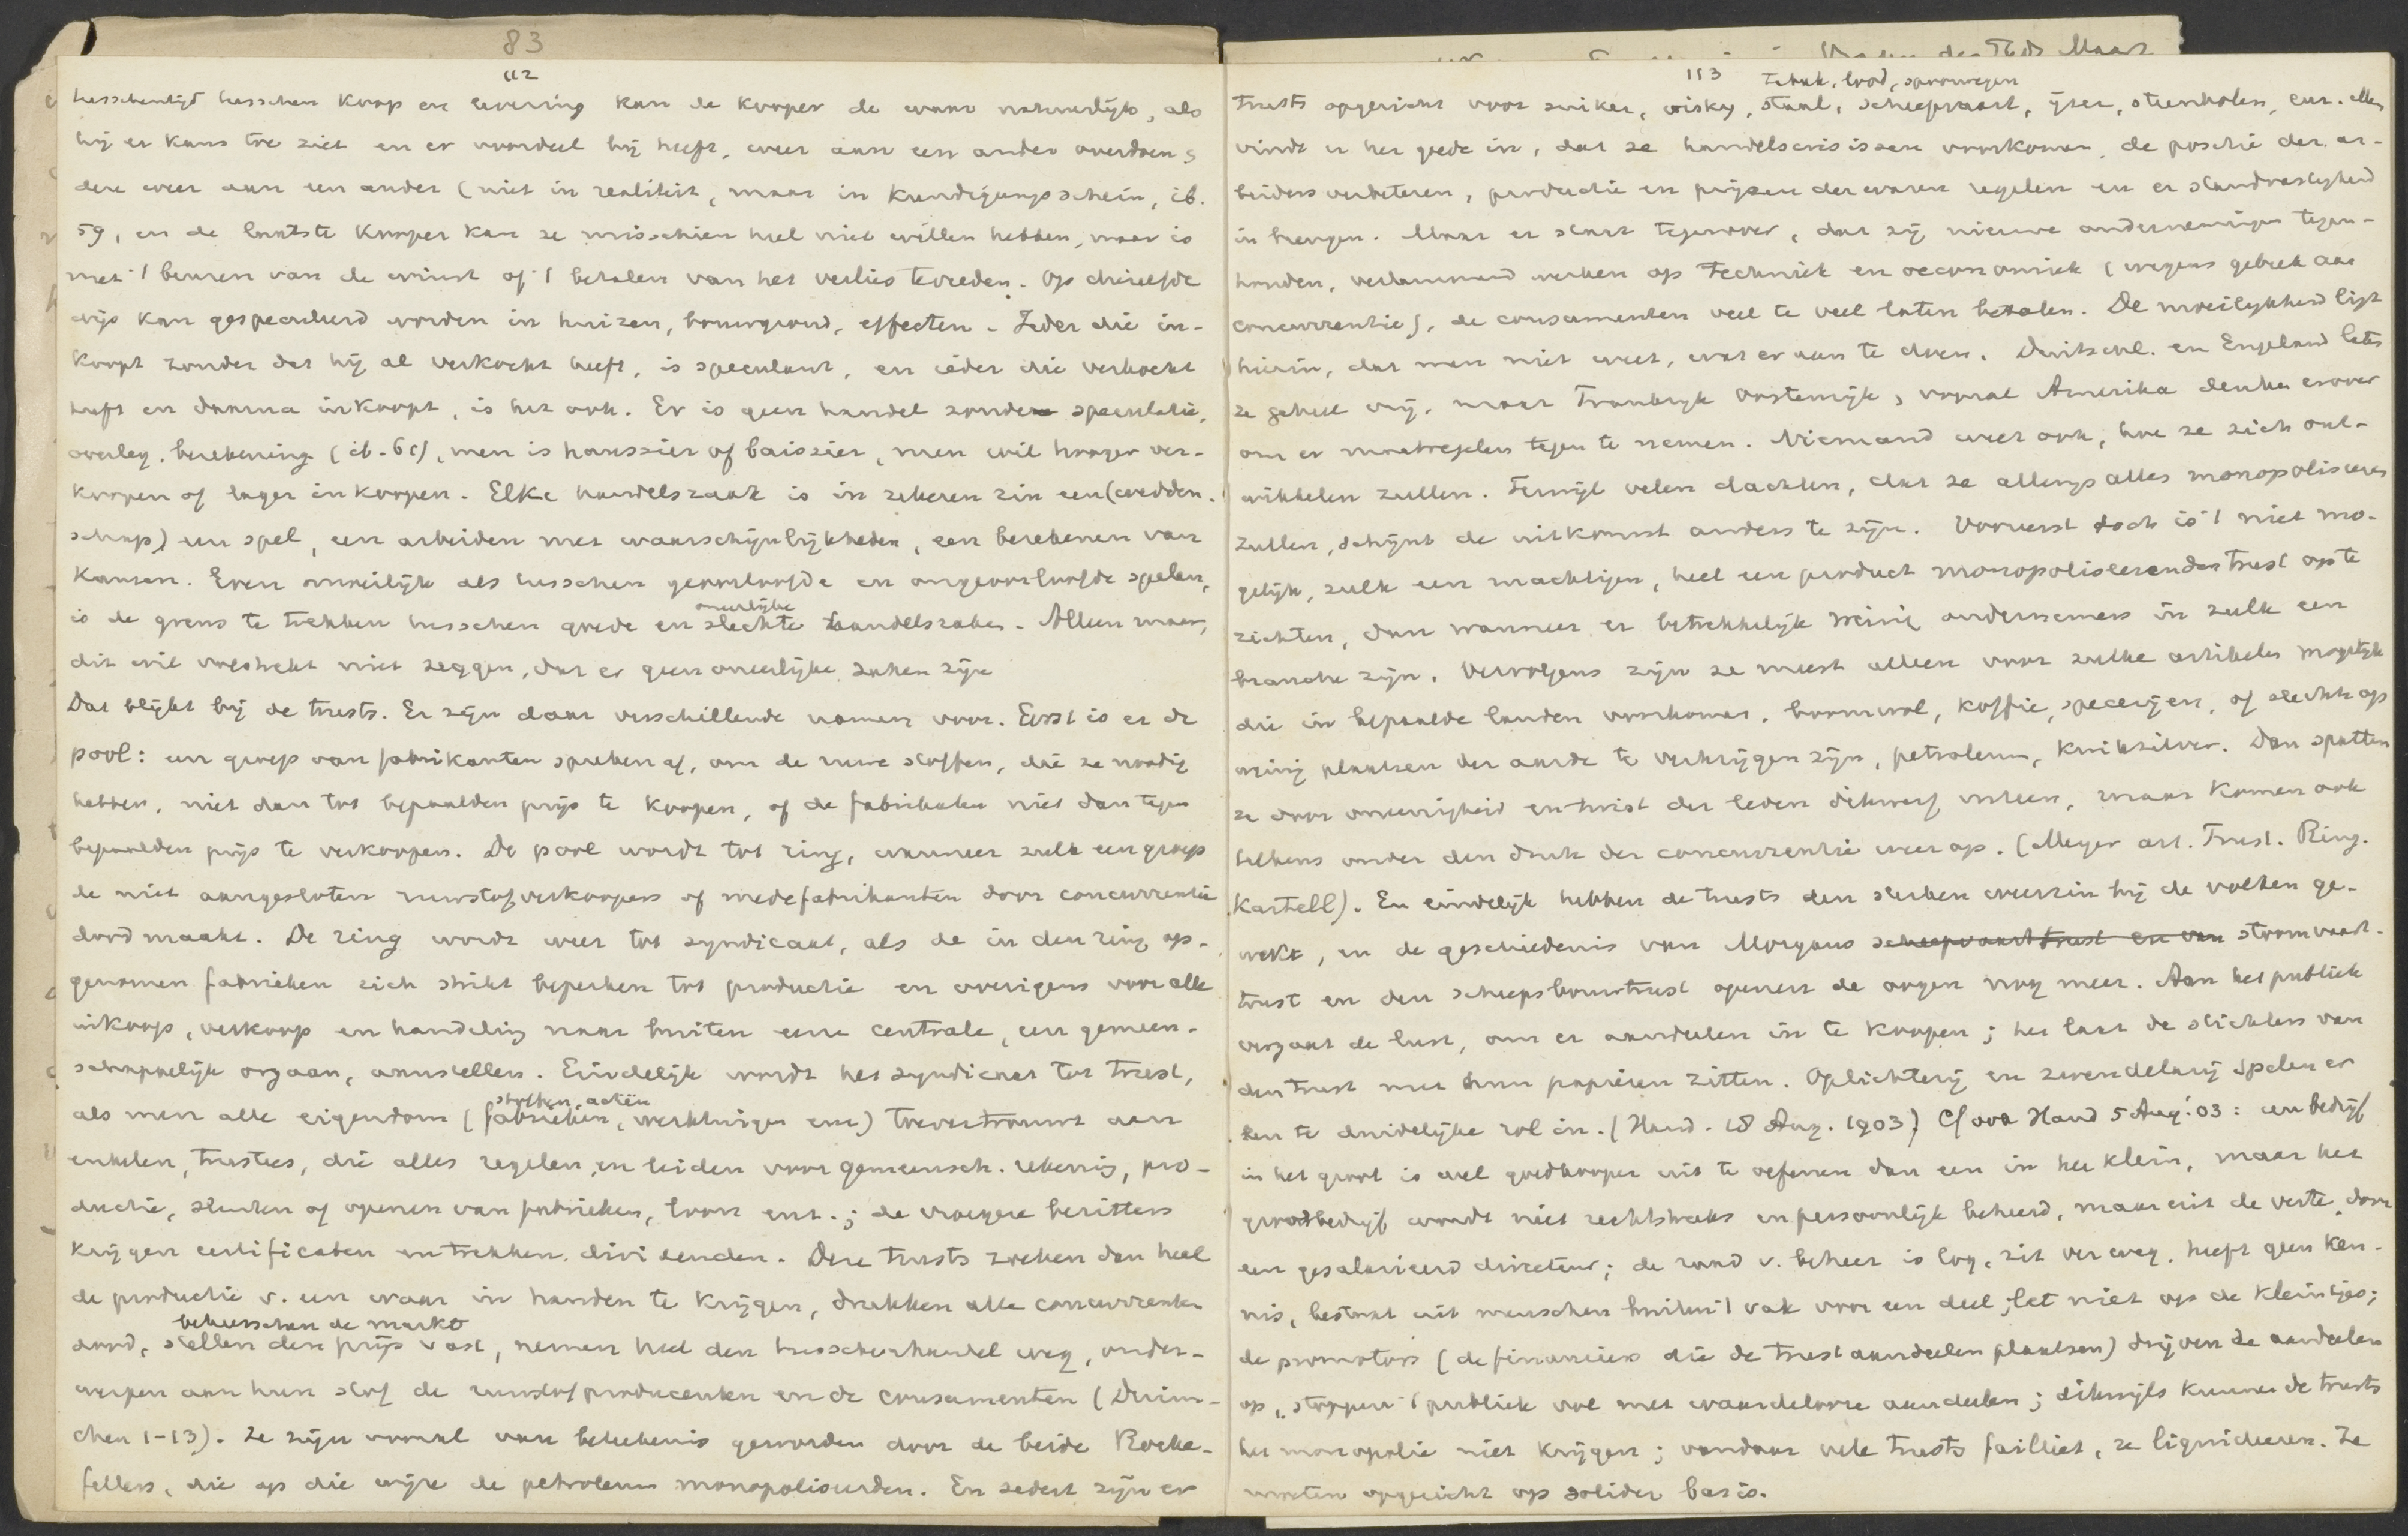 83
112
tusschentijd tusschen koop en levering kan de kooper de waar natuurlijk, als
hij er kans toe ziet en er voordeel bij heeft, weer aan een ander overdoen,
deze weer aan een ander (niet in realiteit, maar in Kundigungsschein, ib.
59, en de laatste kooper kan ze misschien heel niet willen hebben, maar is
met 't beuren van de winst of 't betalen van het verlies tevreden. Op dezelfde
wijs kan gespeculeerd worden in huizen, bouwgrond, effecten. Ieder die in-
koopt zonder dat hij al verkocht heeft, is speculant, en ieder die verkocht
heeft en daarna inkoopt, is het ook. Er is geen handel zonder speculatie,
overleg, berekening (ib. 61), men is haussier of baissier, men wil hooger ver-
koopen of lager inkoopen. Elke handelszaak is in zekeren zin een (wedden-
schap) een spel, een arbeiden met waarschijnlijkheden, een berekenen van
kansen. Even moeilijk als tusschen geoorloofde en ongeoorloofde spelen,
oneerlijke
is de grens te trekken tusschen goede en slechte handelszaken. Alleen maar,
dit wil volstrekt niet zeggen, dat er geen oneerlijke zaken zijn
Dat blijkt bij de trusts. Er zijn daar verschillende namen voor. Eerst is er de
pool: een groep van fabrikanten spreken af, om de ruwe stoffen, die ze noodig
hebben, niet dan tot bepaalden prijs te koopen, of de fabrikaten niet dan tegen
bepaalden prijs te verkoopen. De pool wordt tot ring, wanneer zulk een groep
de niet aangesloten ruwstofverkoopers of medefabrikanten door concurrentie
dood maakt. De ring wordt weer tot syndicaat, als de in den ring op-
genomen fabrieken zich strikt beperken tot productie en overigens voor alle
inkoop, verkoop en handeling naar buiten eene centrale, een gemeen-
schappelijk orgaan, aanstellen. Eindelijk wordt het syndicaat tot trust,
stoffen, actiën
als men alle eigendom (fabrieken, werktuigen enz) toevertrouwt aan
enkelen, trustees, die alles regelen en leiden voor gemeensch. rekening, pro-
ductie, sluiten of openen van fabrieken, loon enz.; de vroegere bezitters
krijgen certificaten en trekken dividenden. Deze trusts zoeken dan heel
de productie v. een waar in handen te krijgen, drukken alle concurrenten
beheerschen de markt
dood, stellen den prijs vast, nemen heel den tusschenhandel weg, onder-
werpen aan hun slof de ruwstofproducenten en de consumenten (Duim-
chen 1-13). Ze zijn vooral van beteekenis geworden door de beide Rocke-
fellers, die op die wijze de petroleum monopoliseerden. En sedert zijn er
113
Tabak, lood, spoorwegen
trusts opgericht voor suiker, wisky, staal, scheepvaart, ijzer, steenkolen, enz. Men
vindt er het goede in, dat ze handelscrisissen voorkomen, de positie der ar-
beiders verbeteren, productie en prijzen der waren regelen en er standvastigheid
in brengen. Maar er staat tegenover, dat zij nieuwe ondernemingen tegen-
houden, verlammend werken op techniek en oeconomiek (wegens gebrek aan
concurrentie), de consumenten veel te veel laten betalen. De moeilijkheid ligt
hierin, dat men niet weet, wat er aan te doen. Duitschl. en Engeland laten
ze geheel vrij, maar Frankrijk Oostenrijk, vooral Amerika denken erover
om er maatregelen tegen te nemen. Niemand weet ook, hoe ze zich ont-
wikkelen zullen. Terwijl velen dachten, dat ze allengs alles monopoliseeren
zullen, schijnt de uitkomst anders te zijn. Vooreerst toch is 't niet mo-
gelijk, zulk een machtigen, heel een product monopoliseerenden trust op te
richten, dan wanneer er betrekkelijk weinig ondernemers in zulk een
branche zijn. Vervolgens zijn ze meest alleen voor zulke artikelen mogelijk
die in bepaalde landen voorkomen, boomwol, koffie, specerijen, of slechts op
weinig plaatsen der aarde te verkrijgen zijn, petroleum, kwikzilver. Dan spatten
ze door oneenigheid en twist der leden dikwerf uiteen, maar komen ook
telkens onder den druk der concurrentie weer op. (Meyer art. Trust. Ring.
Kartell). En eindelijk hebben de trusts den sterken weerzin bij de volken ge-
wekt, en de geschiedenis van Morgans scheepvaart trust en van stoomvaart-
trust en den scheepsbouwtrust openen de oogen nog meer. Aan het publiek
vergaat de lust, om er aandeelen in te koopen; het laat de stichters van
den trust met hun papieren zitten. Oplichterij en zwendelarij spelen er
een te duidelijke rol in. (Hand. 18 Aug. 1903) Cf ook Hand 5 Aug. '03: een bedrijf
in het groot is wel goedkooper uit te oefenen dan een in het klein, maar het
grootbedrijf wordt niet rechtstreeks en persoonlijk beheerd, maar uit de verte, door
een gesalarieerd directeur; de raad v. beheer is log, zit ver weg, heeft geen ken-
nis, bestaat uit menschen buiten 't vak voor een deel; let niet op de kleintjes;
de promotors (de financiers die de trust aandeelen plaatsen) drijven de aandeelen
op, stoppen 't publiek vol met waardelooze aandeelen; dikwijls kunnen de trusts
het monopolie niet krijgen; vandaar vele trusts failliet, ze liquideeren. Ze
moeten opgericht op solider basis.